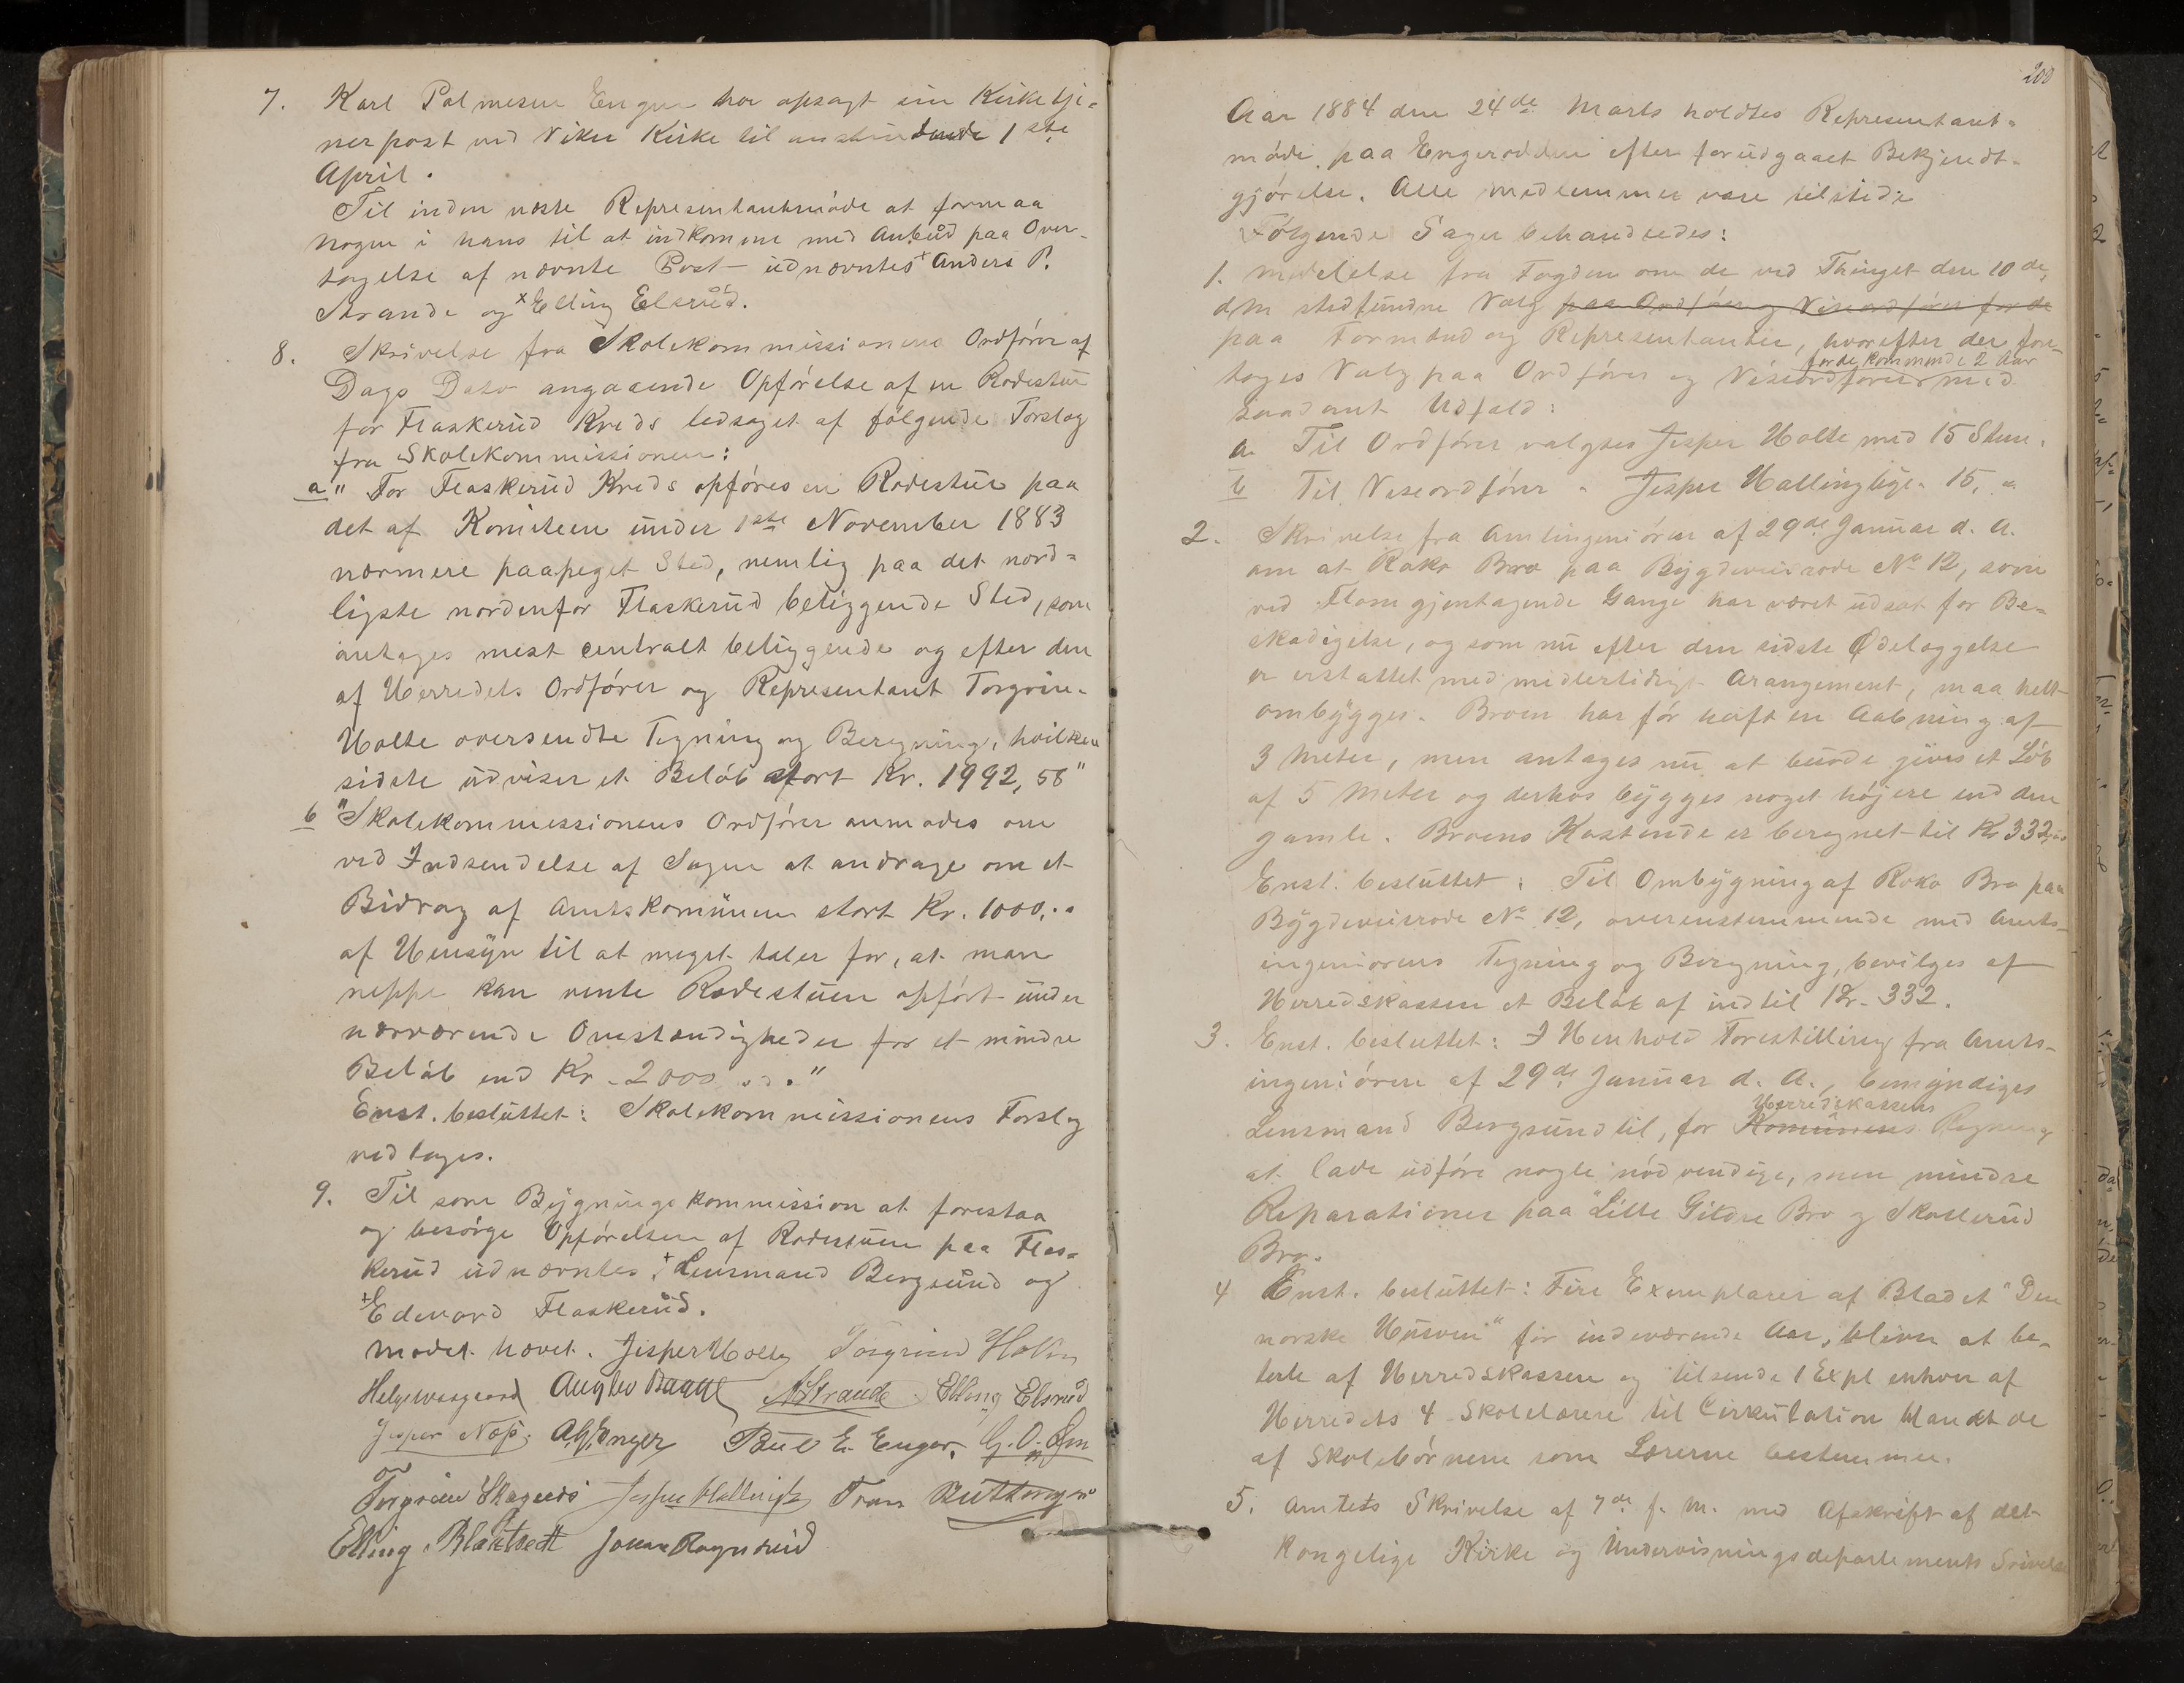 7. Karl Palmesen Engen har opsagt sin Kirketje=
nerpost ved Viker Kirke til anstundende 1ste
April.
Til inden næste Representantmøde at formaa
nogen i hans til at indkomme med Anbud paa Over-
tagelse af nævnte Post udnævntes x Anders P.
Strande og x Elling Elsrud.
8. Skrivelse fra Skolekommissionens Ordfører af
Dags Dato angaaende Opførelse af en Rodestue
for Flaskerud Kreds ledsaget af følgende Forslag
fra Skolekommissionen:
a " For Flaskerud Kreds opføres en Rodestue paa
det af Komiteen under 1ste November 1883
nærmere paapeget Sted, nemlig paa det nord=
ligste nordenfor Flaskerud beliggende Sted, som
antages mest centralt beliggende og efter den
af Herredets Ordfører og Representant Torgrim
Holte oversendte Tegning og Beregning, hvilken
sidste udviser et Beløb stort Kr. 1992,58"
b "Skolekommissionens Ordfører anmodes om
ved Indsendelse af Sagen at andrage om et
Bidrag af Amtskomunen stort Kr. 1000,..
af Hensyn til at meget taler for, at man
neppe kan vente Rodestuen opført under
nærværende Omstændigheder for et mindre
Beløb end Kr. 2000 ..."
Enst. besluttet: Skolekommissionens Forslg
vedtages.
9. Til som Bygningskommission at forestaa
og besørge Opførelsen af Rodestuen paa Flas=
kerud udnævntes: + Lensmand Bergsund og
+ Edevard Flaskerud.
Mødet hævet. Jesper Holte Torgrim Holte
Helge Aasgaard Augho Baatte AStrande. Elling Elsrud
Jesper Næs. A.G. Enger Paul E. Enger. G. O.
Torgrim Skagnæs Jesper Hallingby Frans Buttingsr
Elling Blakstvedt Johan Rognerud
200
Aar 1884 den 24de Marts holdtes Representant=
møde paa Engerodden efter forudgaaet Bekjendt-
gjørelse. Alle Medlemmer vare tilstede
Følgende Sager behandledes:
1. Meddelelse fra Fogden om de ved Thinget den 10de
d M stedfundne Valg paa Ordfører og Viseordfører for de
paa Formænd og Representanter, hvorefter der fore-
for de kommende 2 Aar
toges Valg paa Ordfører og Viseordfører med
saadant Udfald:
a. Til Ordfører valgtes Jesper Holte med 15 Stem.
b Til Viseordfører " Jesper Hallingby " 15. "
2. Skrivelse fra Amtingeniøren af 29de Januar d. A.
om at Roko Bro paa Bygdeveirode No 12, som
ved Flom gjentagende Gange har været udsat for Be=
skadigelse, og som nu efter den sidste Ødelæggelse
er erstattet med midlertidigt Arangement, maa helt
ombygges. Broen har før havt en Aabning af
3 Meter, men antages nu at burde gives et Løb
af 5 Meter og derhos bygges noget højere end den
gamle. Broens Kostende er beregnet til Kr 332,00
Enst. besluttet: Til Ombygning af Roko Bro paa
Bygdeveirode No 12, overenstemmende med Amts-
ingeniørens Tegning og Beregning, bevilges af
Herredskassen et Beløb af indtil Kr. 332.
3. Enst. besluttet: I Henhold Forestilling fra Amts-
ingeniøren af 29de Januar d. A., bemyndiges
Herredskassens
Lensmand Bergsund til, for Komunens Regning
at lade udføre nogle nødvendige, men mindre
Reparationer paa Lille Gildre Bro og Skollerud
Bro.
4 Enst. besluttet: Fire Exemplarer af Bladet "Den
norske Husven" for indeværende Aar, bliver at be-
tale af Herredskassen og tilsende 1 Expl enhver af
Herredets 4 Skolelærere til Cirkulation blandt de
af Skolebørnene som Lærerne bestemmer.
5. Amtets Skrivelse af 7de f. M. med Afskrift af det
kongelige Kirke og Undervisningsdepartements Srivelse